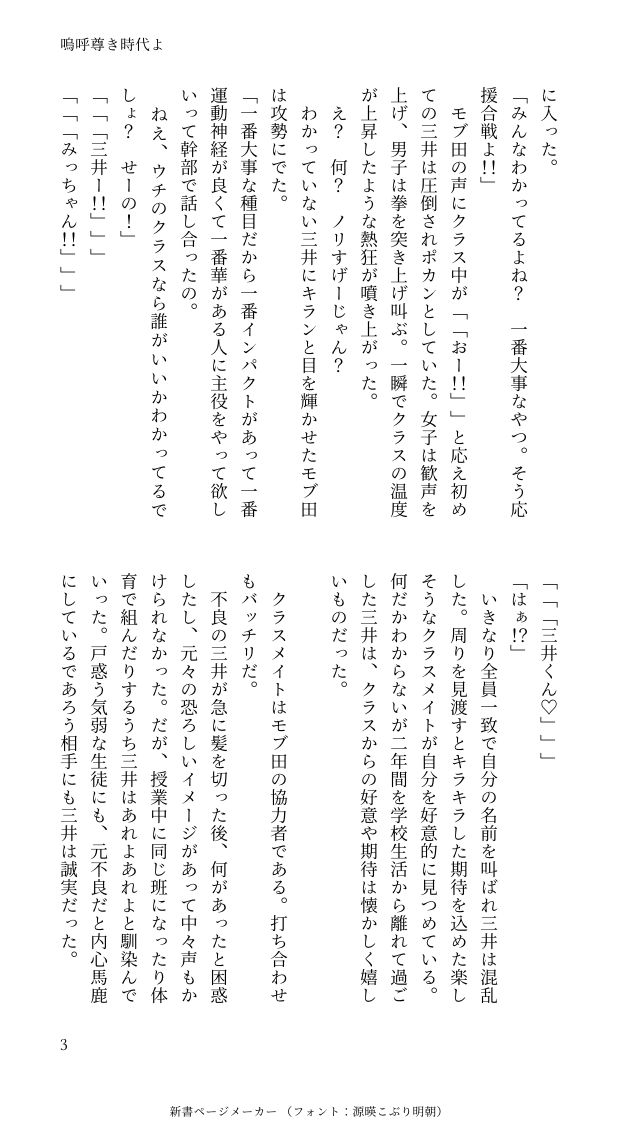 嗚呼尊き時代よ
に入った。
「みんなわかってるよね？　一番大事なやつ。そう応
援合戦よ!!」
　モブ田の声にクラス中が「「おー!!」」と応え初め
ての三井は圧倒されポカンとしていた。女子は歓声を
上げ、男子は拳を突き上げ叫ぶ。一瞬でクラスの温度
が上昇したような熱狂が噴き上がった。
　え？　何？　ノリすげーじゃん？
　わかっていない三井にキランと目を輝かせたモブ田
は攻勢にでた。
「一番大事な種目だから一番インパクトがあって一番
運動神経が良くて一番華がある人に主役をやって欲し
いって幹部で話し合ったの。
　ねえ、ウチのクラスなら誰がいいかわかってるで
しょ？　せーの！」
「「「三井ー!!」」」
「「「みっちゃん!!」」」
「「「三井くん♡」」」
「はぁ!?」
　いきなり全員一致で自分の名前を叫ばれ三井は混乱
した。周りを見渡すとキラキラした期待を込めた楽し
そうなクラスメイトが自分を好意的に見つめている。
何だかわからないが二年間を学校生活から離れて過ご
した三井は、クラスからの好意や期待は懐かしく嬉し
いものだった。
　クラスメイトはモブ田の協力者である。打ち合わせ
もバッチリだ。
　不良の三井が急に髪を切った後、何があったと困惑
したし、元々の恐ろしいイメージがあって中々声もか
けられなかった。だが、授業中に同じ班になったり体
育で組んだりするうち三井はあれよあれよと馴染んで
いった。戸惑う気弱な生徒にも、元不良だと内心馬鹿
にしているであろう相手にも三井は誠実だった。
3
新書ページメーカー（フォント：源暎こぶり明朝）